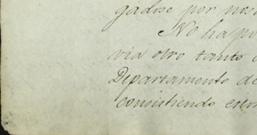 gadose por me
No ha po
via otro tanto
Departamento de
consistiendo estre